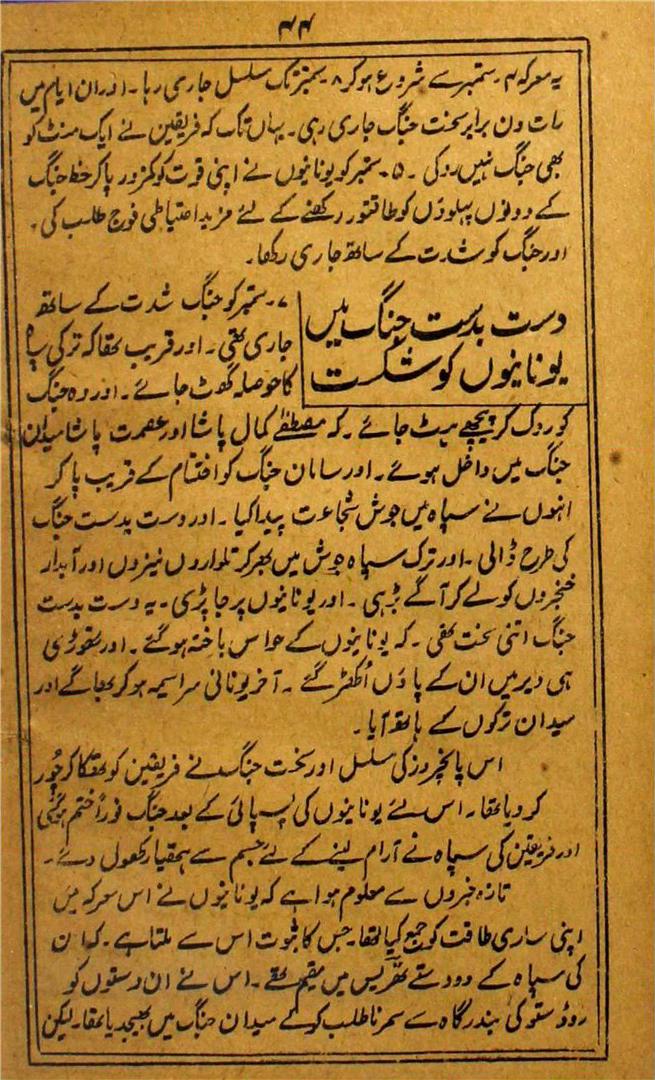 ۴۴
یہ معرکہ ۴۔ ستمبر سے شروع ہوکر ۸۔ ستمبر تک مسلسل جاری رہا۔ اور ان ایام میں
رات دن برابر سخت جنگ جاری رہی۔ یہاں تک کہ فریقین نے ایک منٹ کو
بھی جنگ نہیں روکی۔ ۵۔ ستمبر کو یونانیوں نے اپنی قوت کو کمزور پاکر خط جنگ
کے دونوں پہلوؤں کو طاقتور رکھنے کے لئے مزید احتیاطی فوج طلب کی۔
اور جنگ کو شدت کے ساتھ جاری رکھا۔
دست بدست جنگ میں
یونانیوں کو شکست
۷۔ ستمبر کو جنگ شدت کے ساتھ
جاری تھی۔ اور قریب تھا کہ ترکی سپاہ
کا حوصلہ گھوٹ جائے۔ اور وہ جنگ
کو روک کر پیچھے ہٹ جائے۔ کہ مصطفےٰ کمال پاشا اور عصمت پاشا میدان
جنگ میں داخل ہوئے۔ اور سامان جنگ کو اختتام کے قریب پا کر
انہوں نے سپاہ میں جوش شجاعت پیدا کیا۔ اور دست بدست جنگ
کی طرح ڈالی۔ اور ترک سپاہ جوش میں بھر کر تلواروں نیزوں اور آبدار
خنجروں کو لے کر آگے بڑہی۔ اور یونانیوں پر جا پڑی۔ یہ دست بدست
جنگ اتنی سخت تھی۔ کہ یونانیوں کے حواس باختہ ہوگئے۔ اور تھوڑی
ہی دیر میں ان کے پاؤں اُکھڑ گئے۔ آخر یونانی سراسیمہ ہوکر بھاگے اور
میدان ترکوں کے ہاتھ آیا۔
اس پانچروز کی مسلسل اور سخت جنگ نے فریقین کو تھکا کر چُور
کر دیا تھا۔ اس لئے یونانیوں کی پسپائی کے بعد جنگ فوراً ختم ہوگئی
اور فریقین کی سپاہ نے آرام لینے کے لئے جسم سے ہتھیار کھول دئے۔
تازہ خبروں سے معلوم ہوا ہے کہ یونانیوں نے اس معرکہ میں
اپنی ساری طاقت کو جمع کیا تھا۔ جس کا ثبوت اس سے ملتا ہے۔ کہ ان
کی سپاہ کے دو دستے تھریس میں مقیم تھے۔ اس نے ان دستوں کو
روڈستو کی بندرگاہ سے سمرنا طلب کرکے میدان جنگ میں بھیجدیا تھا۔ لیکن